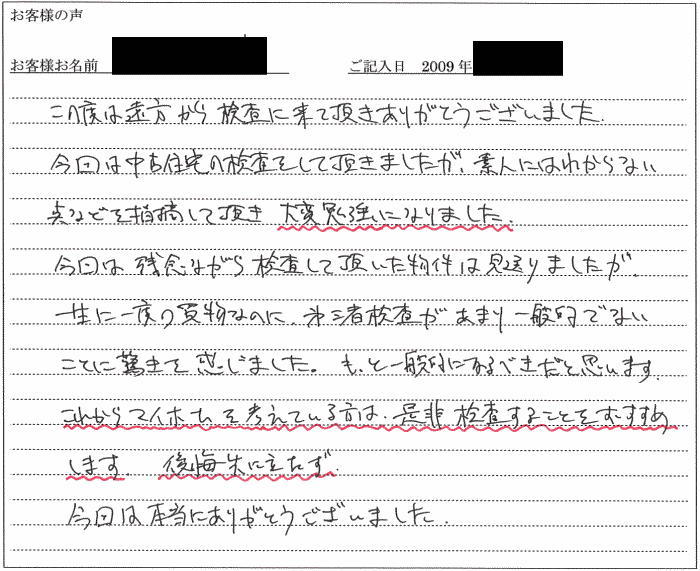 お客様の声
お客様お名前
ご記入日 2009年
この度は遠方から検査に来て頂きありがとうございました。
今回は中古住宅の検査をして頂きましたが、素人にはわからない
点などを指摘して頂き 大変勉強になりました。
今回は残念ながら検査して頂いた物件は見送りましたが、
一生に一度の買物なのに、第三者検査があまり一般的でない
ことに驚きを感じました。もっと一般的になるべきだと思います。
これからマイホームを考えている方は、是非検査することをおすすめ
します。後悔先に立たず。
今回は本当にありがとうございました。